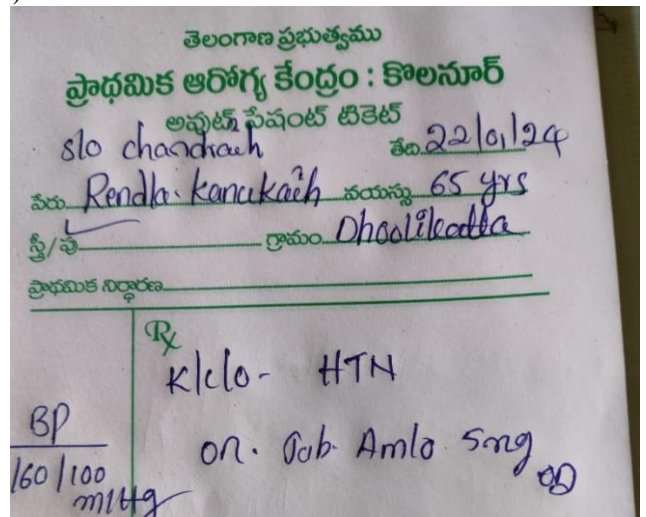 తెలంగాణ ప్రభుత్వము
ప్రాథమిక ఆరోగ్య కేంద్రం : కొలనూర్
అవుట్ పేషంట్ టికెట్
s/o chandraiah
తేది 22/01/24
పేరు Rendla. Kanukaiah వయస్సు 65 yrs
స్త్రీ/పు గ్రామం Dhoolikatta
ప్రాథమిక నిర్ధారణ
Rx
K/c/o - HTN
BP
on. Tab. Amlo 5mg OD
160/100
mmHg